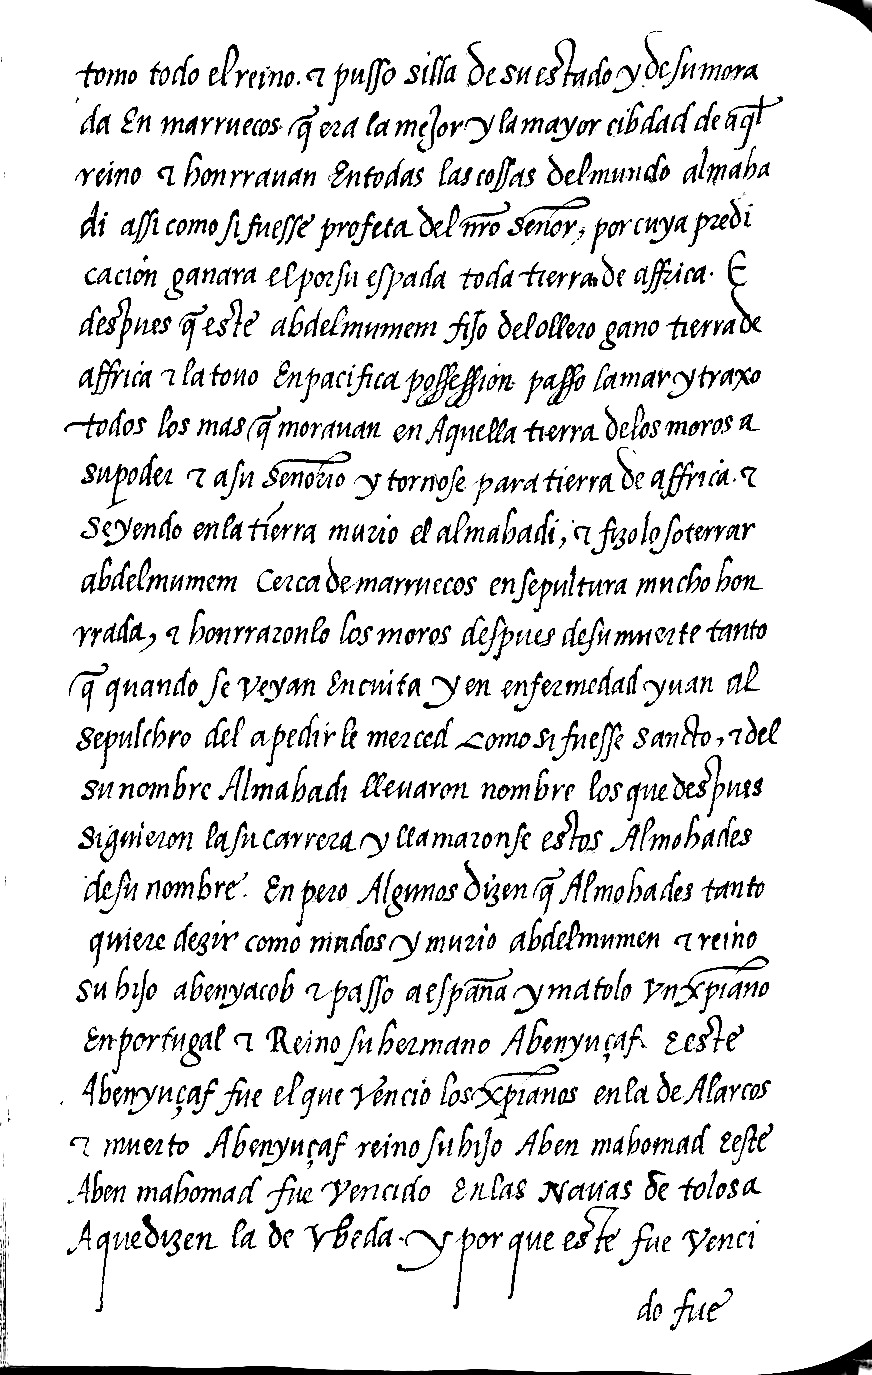 tomo todo el reino. & pusso silla de su estado y de su mora
da En marruecos q̃ era la mejor y la mayor cibdad de aq̃l
reino & honrrauan En todas las cossas del mundo almaha
di assi como si fuesse profeta del nr̃o Señor, por cuya predi
cación ganara el por su espada toda tierra de affrica. E
despues q̃ este abdelmumem fijo del ollero gano tierra de
affrica & la touo En pacifica possession passo la mar y traxo
todos los mas q̃ morauan en Aquella tierra de los moros a
su poder & a su Señorio y tornose para tierra de affrica. &
Seyendo en la tierra murio el almahadi, & fizolo soterrar
abdelmumem Cerca de marruecos en sepultura mucho hon
rrada, & honrraronlo los moros despues de su muerte tanto
q̃ quando se veyan En cuita y en enfermedad yuan al
sepulchro del a pedir le merced como si fuesse sancto, & del
su nombre Almahadi lleuaron nombre los que despues
siguieron la su carrera y llamaronse estos Almohades
de su nombre. Enpero Algunos dizen q̃ Almohades tanto
quiere dezir como mudos y murio abdelmumen & reino
su hijo abenyacob & passo a españa y matolo vn xp̃iano
En portugal & Reino su hermano Abenyuçaf. E este
Abenyuçaf fue el que vencio los xp̃ianos en la de Alarcos
& muerto Abenyuçaf reino su hijo Aben mahomad E este
Aben mahomad fue vencido En las Nauas de tolosa
A que dizen la de Vbeda. y por que este fue venci
do fue